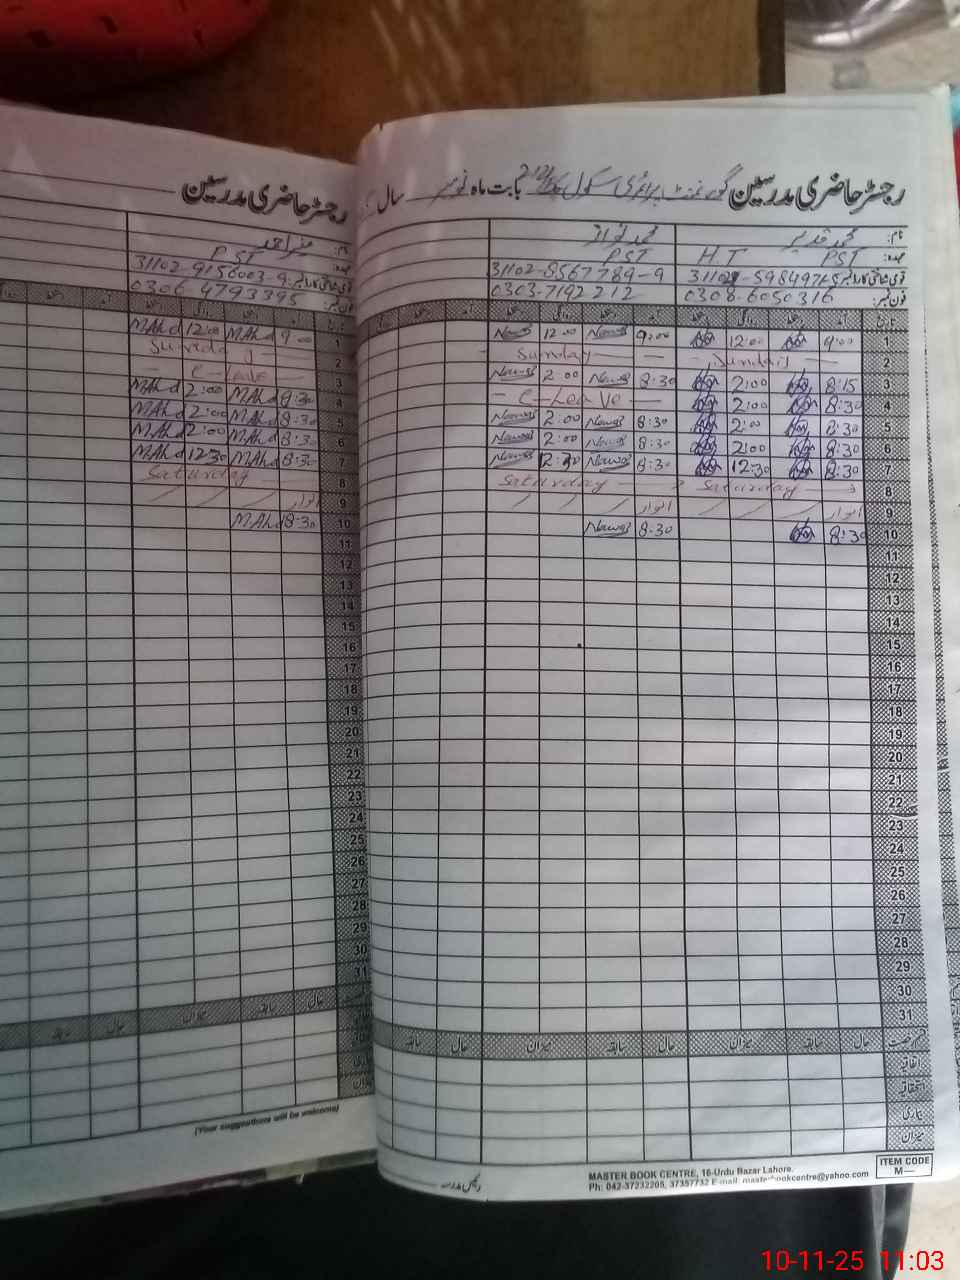 رجسٹر حاضری مدرسین گورنمنٹ پرائمری سکول بابت ماہ نومبر سال
نام: محمد قدیر محمد نواز
عہدہ: PST H.T PST
قومی شناختی کارڈ نمبر: 31102-8567789-9
فون نمبر: 0308-6050316 0303-7192212
تاریخ آمد دستخط روانگی دستخط آمد دستخط روانگی دستخط
1 9:00 12:00 9:00 Nawaz 12:00 Nawaz
2 Sunday Sunday
3 8:15 2:00 8:30 Nawaz 2:00 Nawaz
4 8:30 2:00 C-Leave
5 8:30 2:00 8:30 Nawaz 2:00 Nawaz
6 8:30 2:00 8:30 Nawaz 2:00 Nawaz
7 8:30 12:30 8:30 Nawaz 12:30 Nawaz
8 Saturday Saturday
9 اتوار اتوار
10 8:30 8:30 Nawaz
11
12
13
14
15
16
17
18
19
20
21
22
23
24
25
26
27
28
29
30
31
حال سابقہ میزان حال سابقہ میزان حال سابقہ
اتفاقیہ
استحقاقیہ
بیماری
میزان
رئیس مدرسہ
MASTER BOOK CENTRE, 16-Urdu Bazar Lahore.
Ph: 042-37232205, 37357732 E-mail: masterbookcentre@yahoo.com
ITEM CODE
M—
رجسٹر حاضری مدرسین
نام: منیر احمد
عہدہ: PST
قومی شناختی کارڈ نمبر: 31102-9156003-9
فون نمبر: 0306-4793395
تاریخ آمد دستخط روانگی دستخط
1 9:00 MAhd 12:00 MAhd
2 Sunday
3 C-Leave
4 8:30 MAhd 2:00 MAhd
5 8:30 MAhd 2:00 MAhd
6 8:30 MAhd 2:00 MAhd
7 8:30 MAhd 12:30 MAhd
8 Saturday
9 اتوار
10 8:30 MAhd
11
12
13
14
15
16
17
18
19
20
21
22
23
24
25
26
27
28
29
30
31
حال سابقہ میزان حال سابقہ
(Your suggestions will be welcome)
10-11-25 11:03